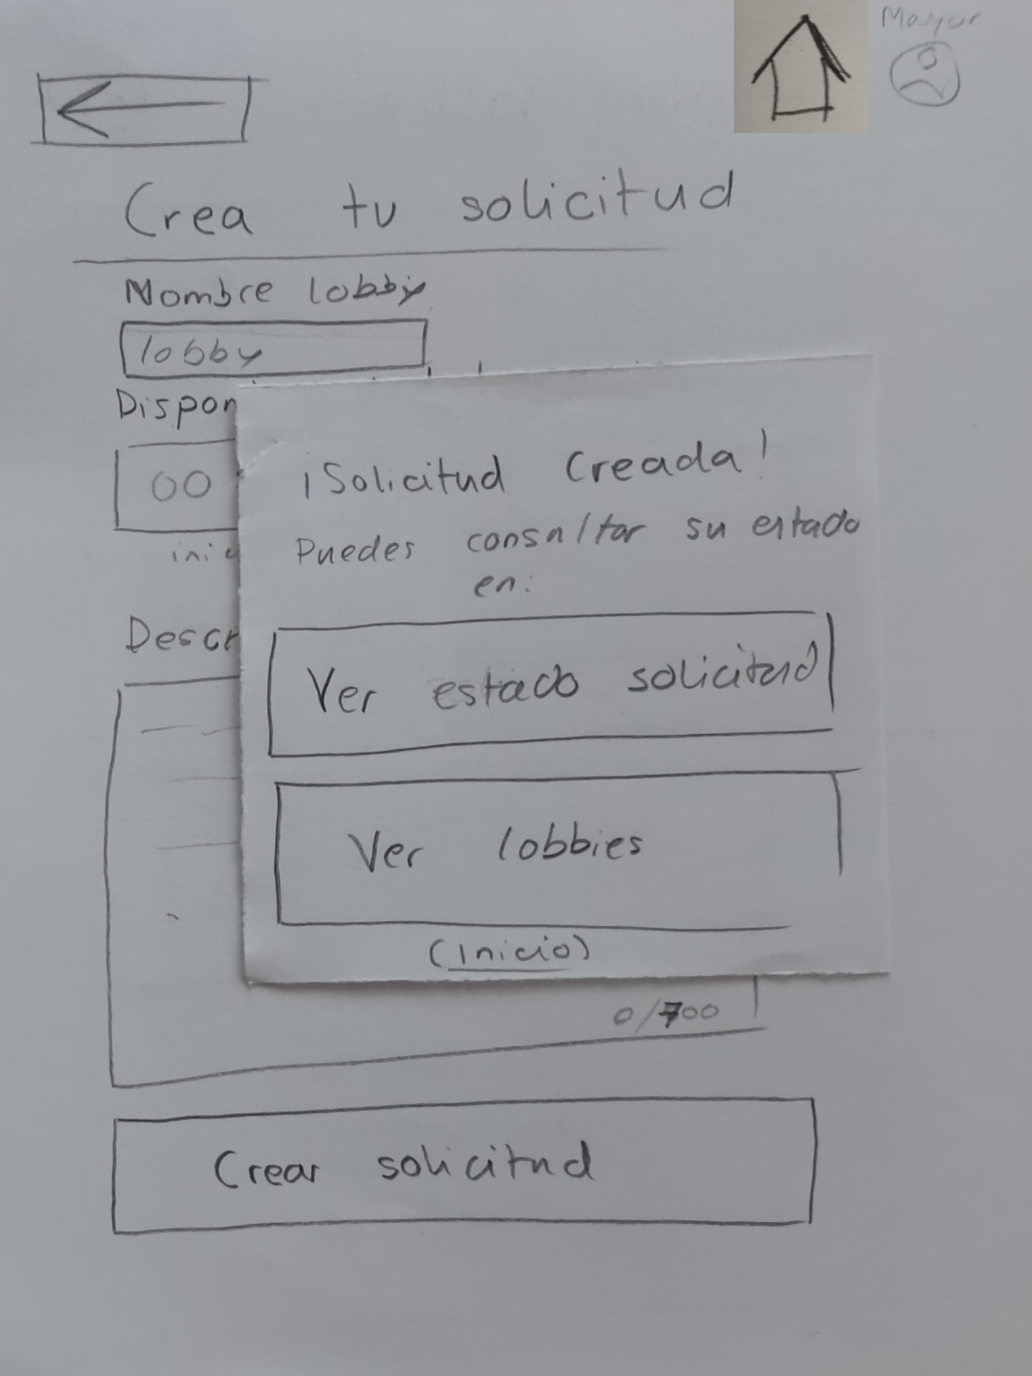 Mayor
Crea tu solicitud
Nombre lobby
lobby
Dispon
00
inic
¡Solicitud Creada!
Puedes consultar su estado
en:
Descr
Ver estado solicitud
Ver lobbies
(Inicio)
0/700
Crear solicitud